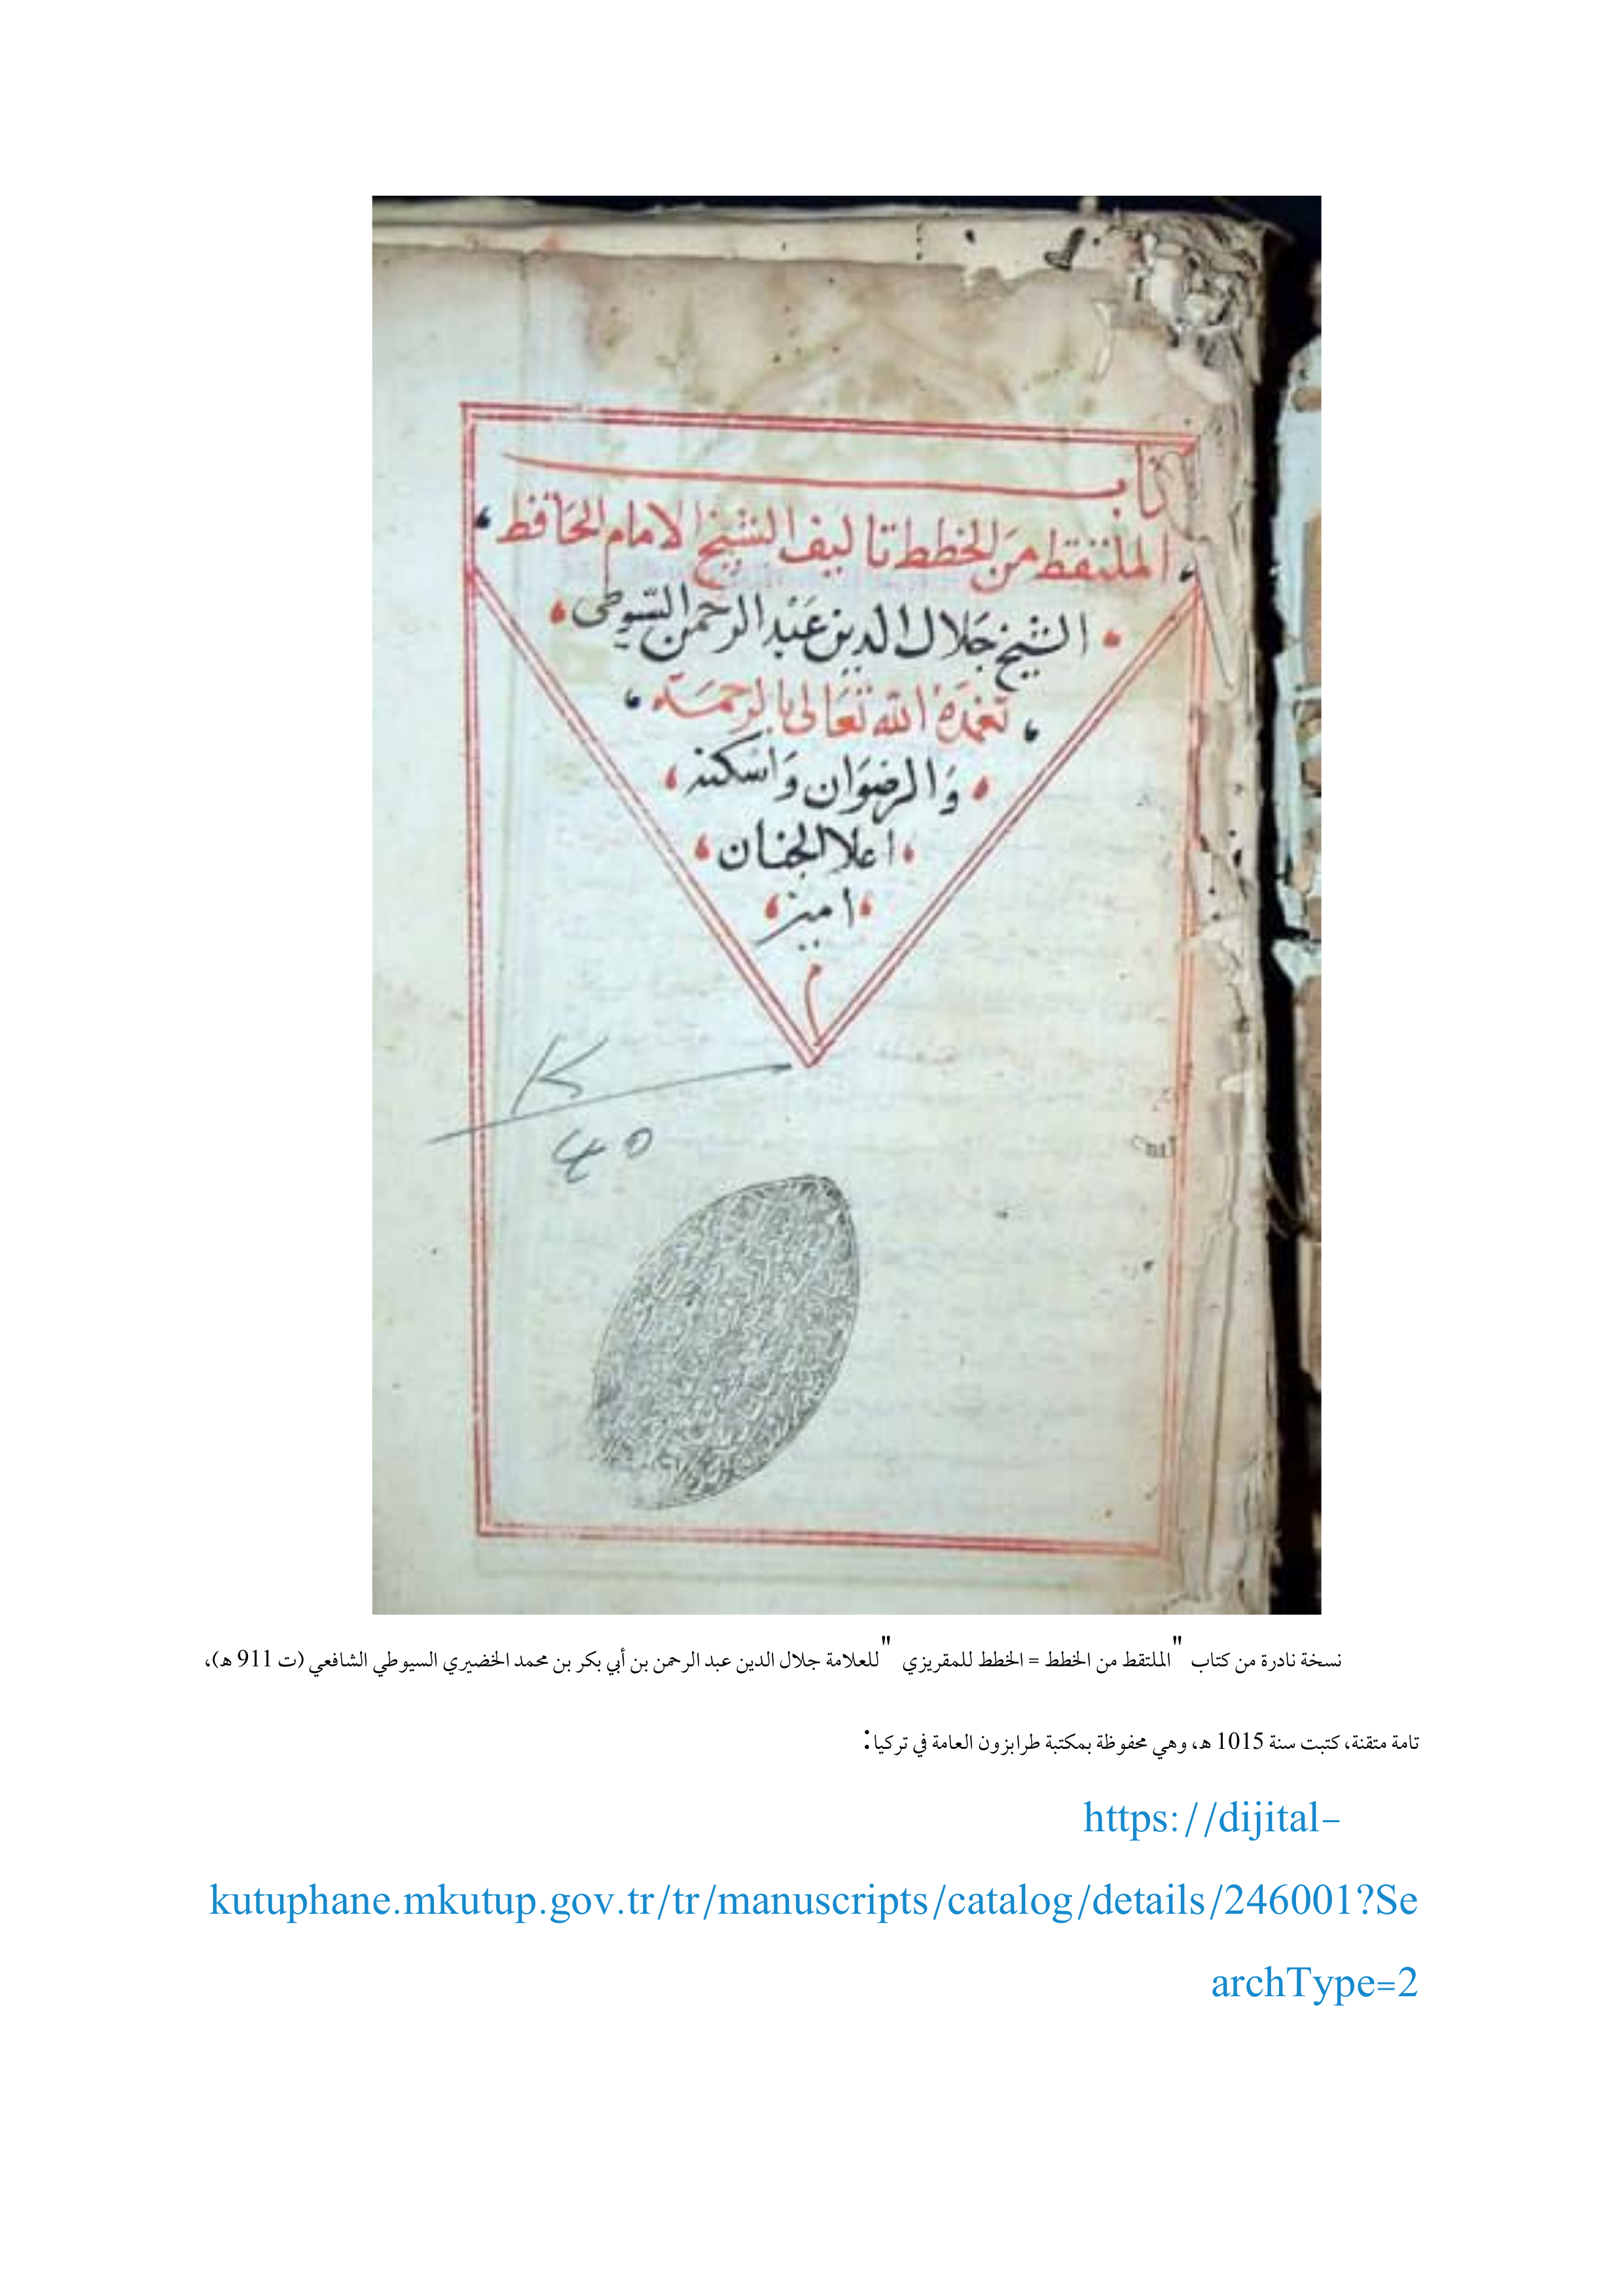 كتاب
الملتقط من الخطط تاليف الشيخ الامام الحافظ
الشيخ جَلال الدين عَبْد الرحمن السّيوطى
تغمدَهُ الله تعَالى بالرحمَة
وَالرضوَان وَاسكنه
اعلا الجنان
امين
م
K
45
نسخة نادرة من كتاب "الملتقط من الخطط = الخطط للمقريزي" للعلامة جلال الدين عبد الرحمن بن أبي بكر بن محمد الخضيري السيوطي الشافعي (ت 911 ه)،
تامة متقنة، كتبت سنة 1015 ه، وهي محفوظة بمكتبة طرابزون العامة في تركيا:
https://dijital-
kutuphane.mkutup.gov.tr/tr/manuscripts/catalog/details/246001?Se
archType=2